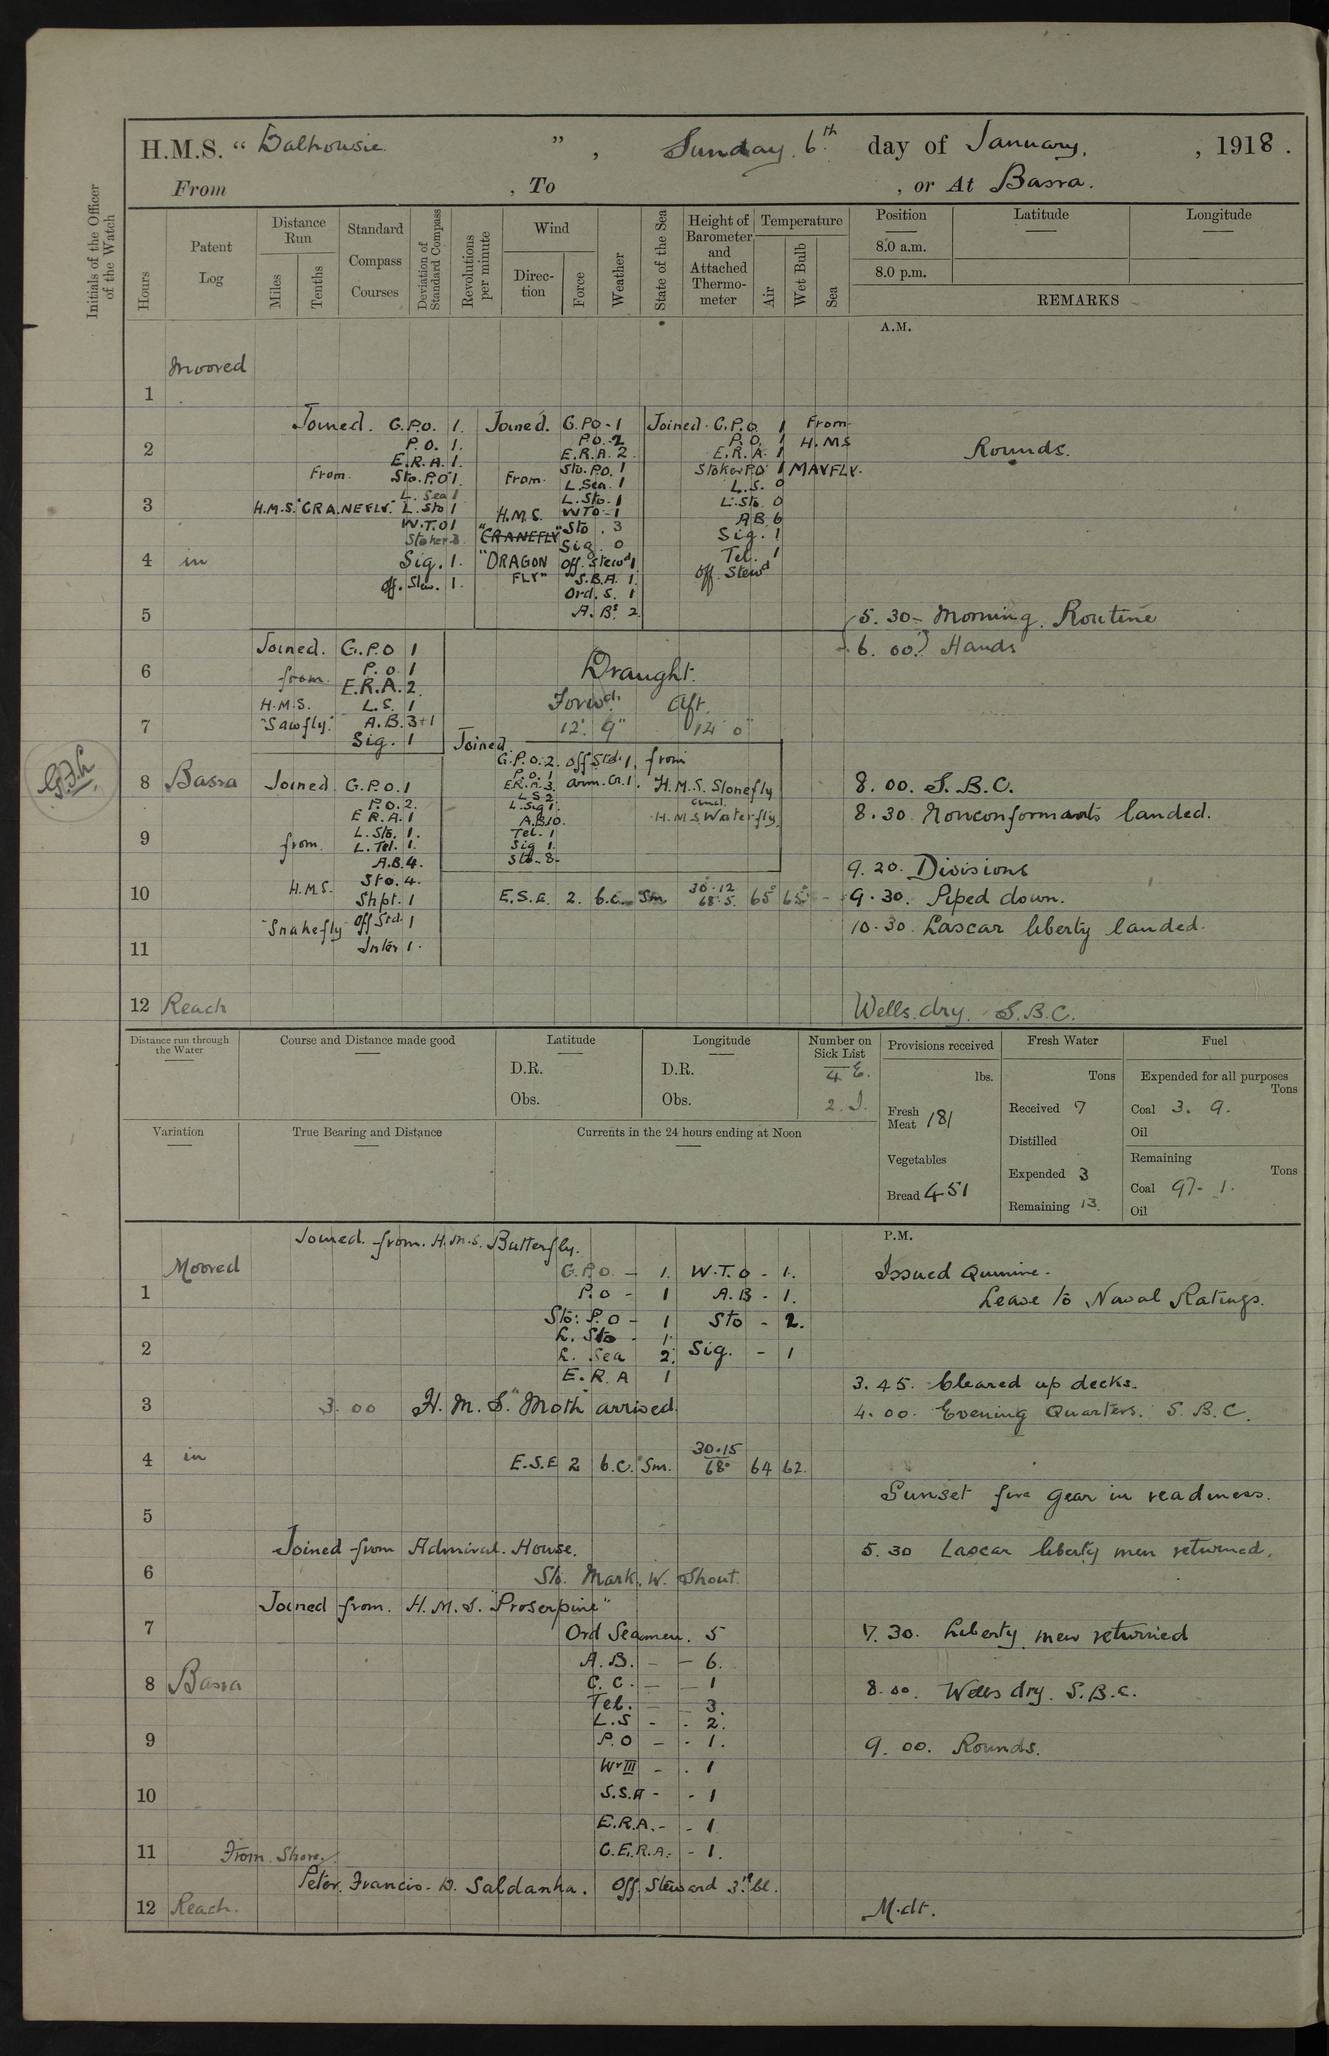 H.M.S. " Dalhousie " , Sunday 6th day of January, , 1918 .
From , To , or At Basra.
Initials of the Officer of the Watch
Hours
Patent Log
Distance Run
Miles
Tenths
Standard Compass Courses
Deviation of Standard Compass
Revolutions per minute
Wind
Direction
Force
Weather
State of the Sea
Height of Barometer and Attached Thermometer
Temperature
Air
Wet Bulb
Sea
Position Latitude Longitude
8.0 a.m.
8.0 p.m.
REMARKS
A.M.
Moored
1
2 Rounds.
3
4 in
5 5.30 - Morning Routine
6.00. Hands
6
7
8 Basra 8.00. S.B.C.
8.30 Nonconformants landed.
9
9.20. Divisions
10 E.S.E. 2. b.c. Sm. 30.12 68.5. 65° 65° - 9.30. Piped down.
10.30. Lascar liberty landed.
11
12 Reach Wells dry. S.B.C.
Joined. G.P.O. 1.
P.O. 1.
E.R.A. 1.
From Sto. P.O. 1
L. Sea 1
H.M.S. "CRANEFLY" L. Sto 1
W.T.O 1
Stoker 3
Sig. 1.
Off. Stew. 1.
Joined. G.P.O - 1
P.O. 2
E.R.A. 2
Sto. P.O. 1
From. L. Sea. 1
L. Sto. 1
H.M.S. W.T.O - 1
"CRANEFLY" Sto. 3
Sig. 0
"DRAGON FLY" Off. Stewd 1
S.B.A. 1.
Ord. S. 1
A.Bs. 2
Joined. G.P.O. 1 From
P.O. 1 H.M.S
E.R.A. 1
Stoker P.O 1 MAYFLY.
L.S. 0
L. Sto. 0
A.B. 6
Sig. 1
Tel. 1
Off. Stewd
Joined. G.P.O 1
from. P.O. 1
E.R.A. 2.
H.M.S. L.S. 1
"Sawfly." A.B. 3+1
Sig. 1
Draught.
Forwd. Aft.
12' 9" 14' 0"
Joined.
G.P.O. 2. Off Std. 1. from
P.O. 1
E.R.A. 3. Arm. Cr. 1. H.M.S. Stonefly
L.S. 2 and
L. Sig 1. H.M.S Waterfly.
A.B. 10.
Tel. 1
Sig 1
Sto. 8.
Joined G.P.O. 1
P.O. 2.
E.R.A. 1
L. Sto. 1.
from. L. Tel. 1.
A.B. 4.
H.M.S. Sto. 4.
Shpt. 1
"Snakefly" Off Std. 1
Inter 1.
Distance run through the Water
Course and Distance made good
Latitude
D.R.
Obs.
Longitude
D.R.
Obs.
Number on Sick List
4 E.
2. I.
Provisions received
lbs.
Fresh Meat 181
Vegetables
Bread 451
Fresh Water
Tons
Received 7
Distilled
Expended 3
Remaining 13.
Fuel
Expended for all purposes
Tons
Coal 3. 9.
Oil
Remaining
Tons
Coal 97. 1.
Oil
Variation
True Bearing and Distance
Currents in the 24 hours ending at Noon
P.M.
Joined from. H.M.S. Butterfly.
Moored G.P.O. - 1. W.T.O - 1. Issued Quinine.
1 P.O - 1 A.B - 1. Leave to Naval Ratings.
Sto: P.O - 1 Sto - 2.
L. Sto - 1
2 L. Sea 2. Sig. - 1
E.R.A 1 3.45. Cleared up decks.
3 3.00 H.M.S. "Moth" arrived. 4.00. Evening Quarters. S.B.C.
4 in E.S.E 2 b.c. Sm. 30.15 68° 64 62.
Sunset fire gear in readiness.
5
Joined from Admiral. House. 5.30 Lascar liberty men returned.
6 Sto. Mark. W. Shout.
Joined from. H.M.S. "Proserpine"
7 Ord Seamen. 5 7.30. Liberty men returned
A.B. - - 6.
8 Basra C.C. - - 1 8.00. Wells dry. S.B.C.
Tel. - - 3.
L.S - - 2.
9 P.O - - 1. 9.00. Rounds.
Wr III - - 1
10 S.S.A - - 1
E.R.A. - - 1
11 C.E.R.A. - 1.
From Shore.
Peter. Francis. D. Saldanha. Off. Steward 3rd cl.
12 Reach. M.dt.